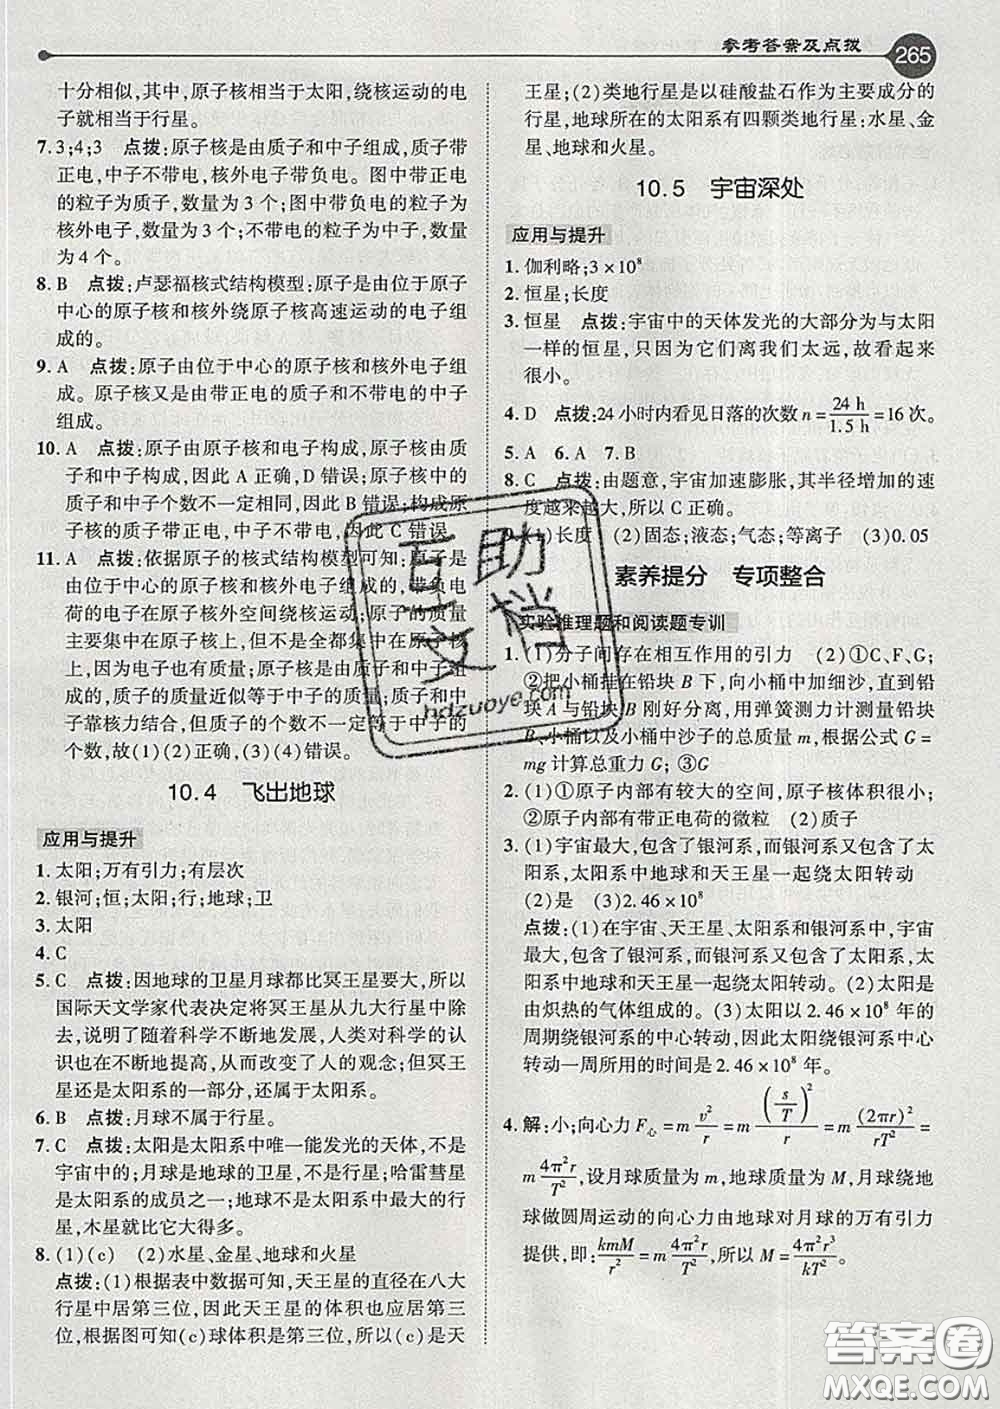 参考答案及点拨 265
十分相似,其中,原子核相当于太阳,绕核运动的电
子就相当于行星。
7. 3;4;3 点拨:原子核是由质子和中子组成,质子带
正电,中子不带电,核外电子带负电。图中带正电
的粒子为质子,数量为 3 个;图中带负电的粒子为
核外电子,数量为 3 个;不带电的粒子为中子,数量
为 4 个。
8. B 点拨:卢瑟福核式结构模型:原子是由位于原子
中心的原子核和绕原子核高速运动的电子组
成的。
9. A 点拨:原子由位于中心的原子核和核外电子组
成。原子核又是由带正电的质子和不带电的中子
组成。
10. A 点拨:原子由原子核和电子构成,原子核由质
子和中子构成,因此 A 正确,D 错误;原子核中的
质子和中子个数不一定相同,因此 B 错误;构成原
子核的质子带正电,中子不带电,因此 C 错误。
11. A 点拨:依据原子的核式结构模型可知:原子是
由位于中心的原子核和核外电子组成,带负电
荷的电子在原子核外空间绕核运动;原子的质量
主要集中在原子核上,但不是全部都集中在原子核
上,因为电子也有质量;原子核是由质子和中子组
成的,质子的质量近似等于中子的质量,质子和中
子靠核力结合,但质子的个数不一定等于中子的
个数,故(1)(2)正确,(3)(4)错误。
10.4 飞出地球
应用与提升
1. 太阳;万有引力;有层次
2. 银河;恒;太阳;行;地球;卫
3. 太阳
4. C
5. C 点拨:因地球的卫星月球都比冥王星要大,所以
国际天文学家代表决定将冥王星从九大行星中除
去,说明了随着科学不断地发展,人类对科学的认
识也在不断地提高,从而改变了人的观念;但冥王
星是太阳系的一部分,还属于太阳系。
6. B 点拨:月球不属于行星。
7. C 点拨:太阳是太阳系中唯一能发光的天体,不是
宇宙的中心;月球是地球的卫星,不是行星;哈雷彗星
是太阳系的成员之一;地球不是太阳系中最大的行
星,木星就比它大得多。
8. (1)(c) (2)水星、金星、地球和火星
点拨:(1)根据表中数据可知,天王星的直径在八大
行星中居第三位,因此天王星的体积也应居第三
位,根据图可知(c)球体积是第三位,所以(c)是天
王星;(2)类地行星是以硅酸盐石作为主要成分的
行星,地球所在的太阳系有四颗类地行星:水星、金
星、地球和火星。
10.5 宇宙深处
应用与提升
1. 伽利略;3×10⁸
2. 恒星;长度
3. 恒星 点拨:宇宙中的天体发光的大部分为与太阳
一样的恒星,只因为它们离我们太远,故看起来
很小。
4. D 点拨:24 小时内看见日落的次数 n = 24 h/1.5 h = 16 次。
5. A 6. A 7. B
8. C 点拨:由题意,宇宙加速膨胀,其半径增加的速
度越来越大,所以 C 正确。
9. (1)长度 (2)固态;液态;气态;等离子 (3)0.05
素养提分 专项整合
实验推理题和阅读题专训
1. (1)分子间存在相互作用的引力 (2)①C、F、G;
②把小桶挂在铅块 B 下,向小桶中加细沙,直到铅
块 A 与铅块 B 刚好分离,用弹簧测力计测量铅块
B、小桶以及小桶中沙子的总质量 m,根据公式 G =
mg 计算总重力 G; ③G
2. (1)①原子内部有较大的空间,原子核体积很小;
②原子内部有带正电荷的微粒 (2)质子
3. (1)宇宙最大,包含了银河系,而银河系又包含了太
阳系,太阳系中地球和天王星一起绕太阳转动
(2)是 (3)2.46×10⁸
点拨:(1)在宇宙、天王星、太阳系和银河系中,宇宙
最大,包含了银河系,而银河系又包含了太阳系,太
阳系中地球和天王星一起绕太阳转动。(2)太阳是
由炽热的气体组成的。(3)太阳以 2.46×10⁸ 年的
周期绕银河系的中心转动,因此太阳绕银河系中心
转动一周所用的时间是 2.46×10⁸ 年。
4. 解:小;向心力 F心 = m v²/r = m (s/T)²/r = m (2πr)²/rT² =
m 4π²r/T²,设月球质量为 m,地球质量为 M,月球绕地
球做圆周运动的向心力由地球对月球的万有引力
提供,即:kmM/r² = m 4π²r/T²,所以 M = 4π²r³/kT²。
互助
文档
hdzuoye.com
答案圈
MXQE.COM